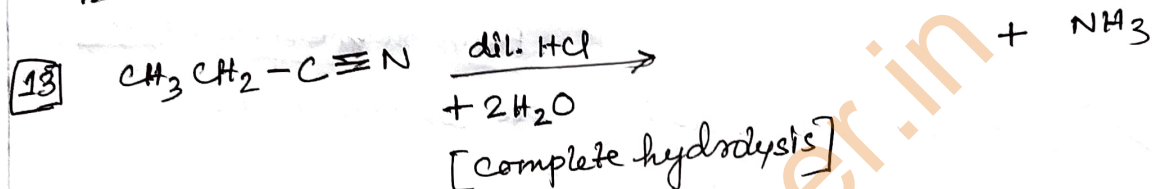 13 CH3CH2-C≡N dil. HCl + NH3
+ 2H2O
[complete hydrolysis]
er.in